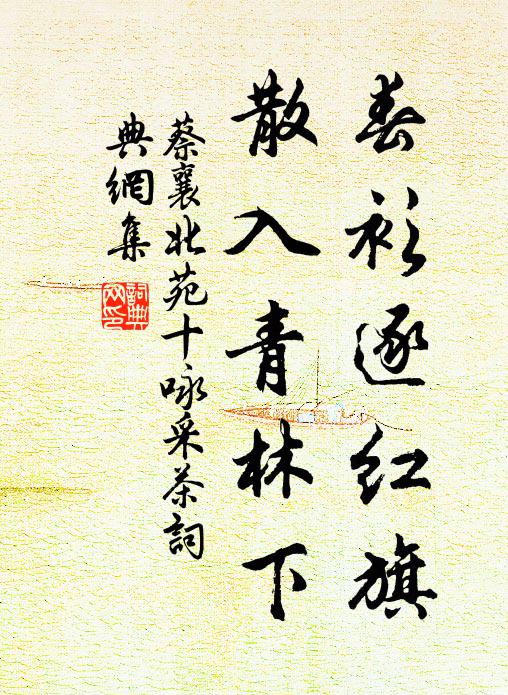 春衫逐红旗
散入青林下
蔡襄北苑十咏采茶詞
典網集
詞典网印